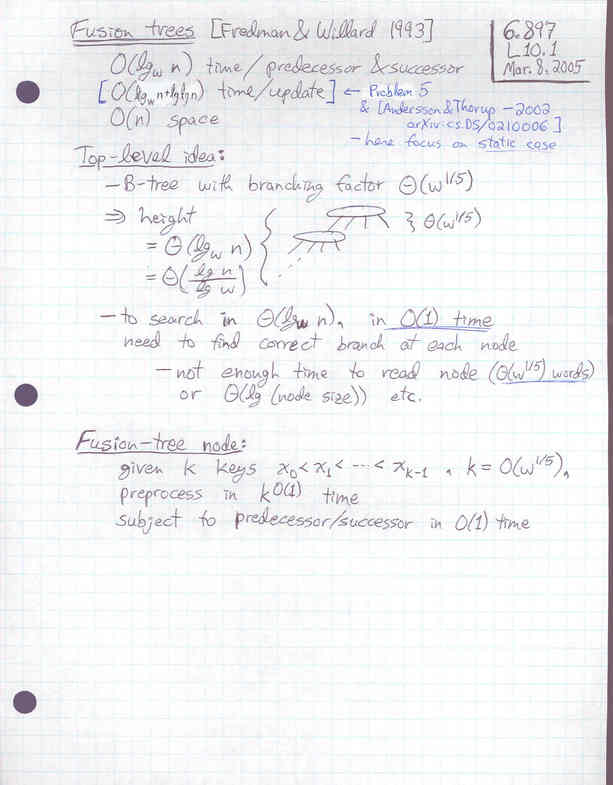 Fusion trees [Fredman & Willard 1993]
6.897
L10.1
Mar. 8, 2005
O(lg_w n) time/predecessor & successor
[O(lg_w n + lg lg n) time/update] ← Problem 5
& [Andersson & Thorup - 2002
arXiv:cs.DS/0210006]
O(n) space
- here focus on static case
Top-level idea:
- B-tree with branching factor Θ(w^{1/5})
⇒ height
= Θ(lg_w n)
= Θ(lg n / lg w)
} Θ(w^{1/5})
- to search in Θ(lg_w n), in O(1) time
need to find correct branch at each node
- not enough time to read node (Θ(w^{1/5}) words)
or Θ(lg (node size)) etc.
Fusion-tree node:
given k keys x_0 < x_1 < ... < x_{k-1}, k = O(w^{1/5}),
preprocess in k^{O(1)} time
subject to predecessor/successor in O(1) time